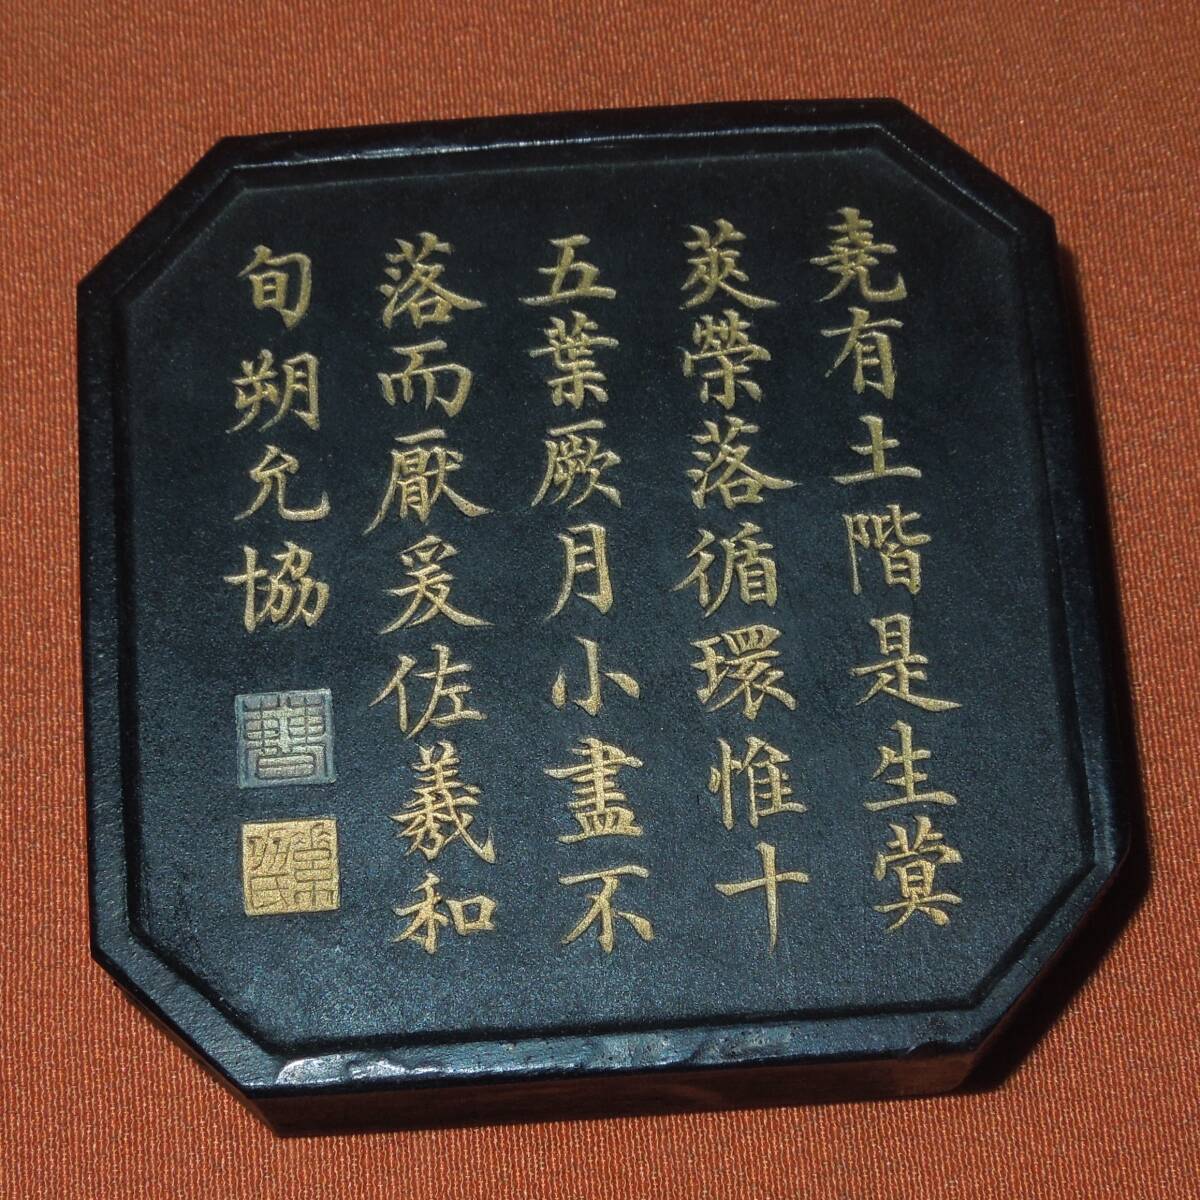 堯有土階是生蓂
莢榮落循環惟十
五葉厥月小盡不
落而厭爰佐羲和
旬朔允協